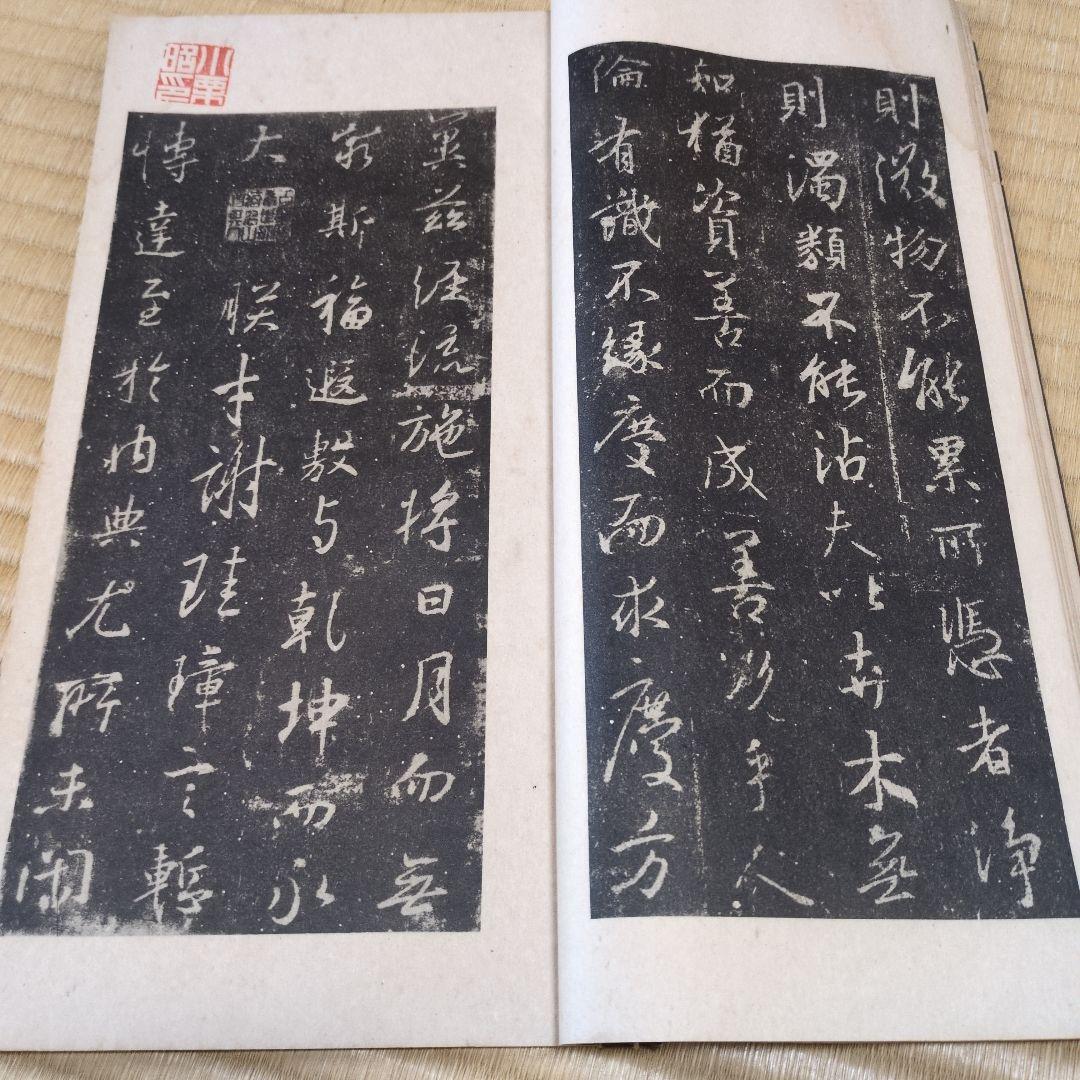 則微物不能累所憑者淨
則濁類不能沾夫以卉木無
知猶資善而成善況乎人
倫有識不緣慶而求慶方
冀茲經流施將日月而無
窮斯福遐敷与乾坤而永
大朕才謝珪璋言慙
博達至於內典尤所未閑
小栗
昭印